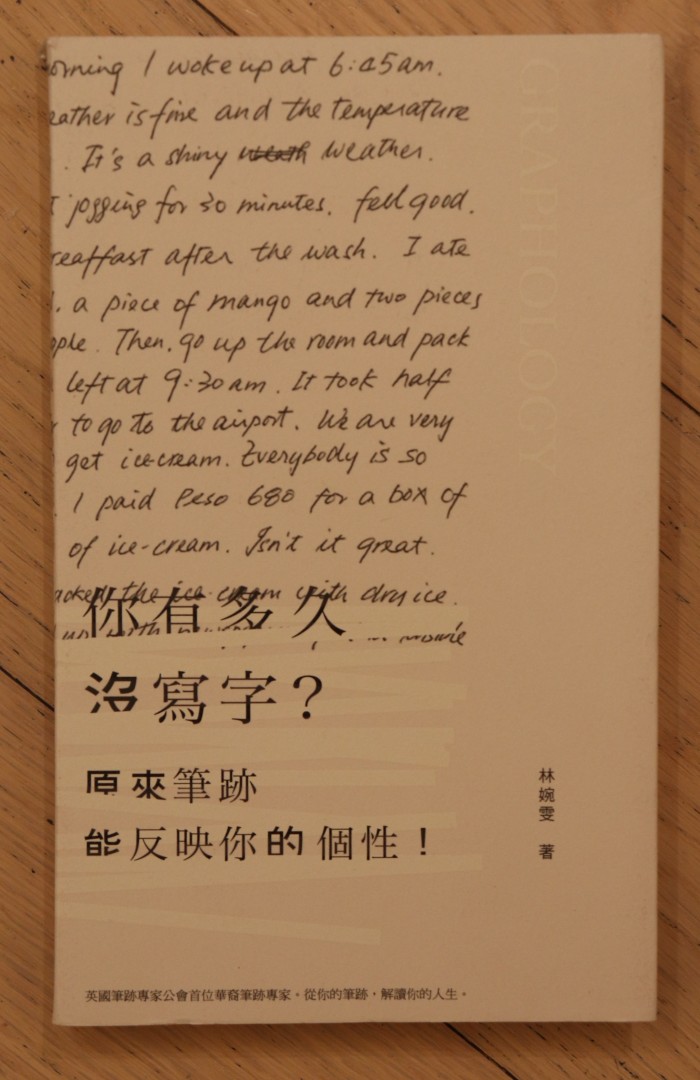 orning I woke up at 6:45am.
eather is fine and the temperature
. It's a shiny weather.
t jogging for 30 minutes. fell good.
reaffast after the wash. I ate
. a piece of mango and two pieces
ple. Then. go up the room and pack
left at 9:30am. It took half
to go to the airport. We are very
get ice-cream. Everybody is so
I paid Peso 680 for a box of
of ice-cream. Isn't it great.
acked the ice cream with dry ice.
with movie
你有多久
沒寫字？
原來筆跡
能反映你的個性！
GRAPHOLOGY
林婉雯 著
英國筆跡專家公會首位華裔筆跡專家。從你的筆跡，解讀你的人生。